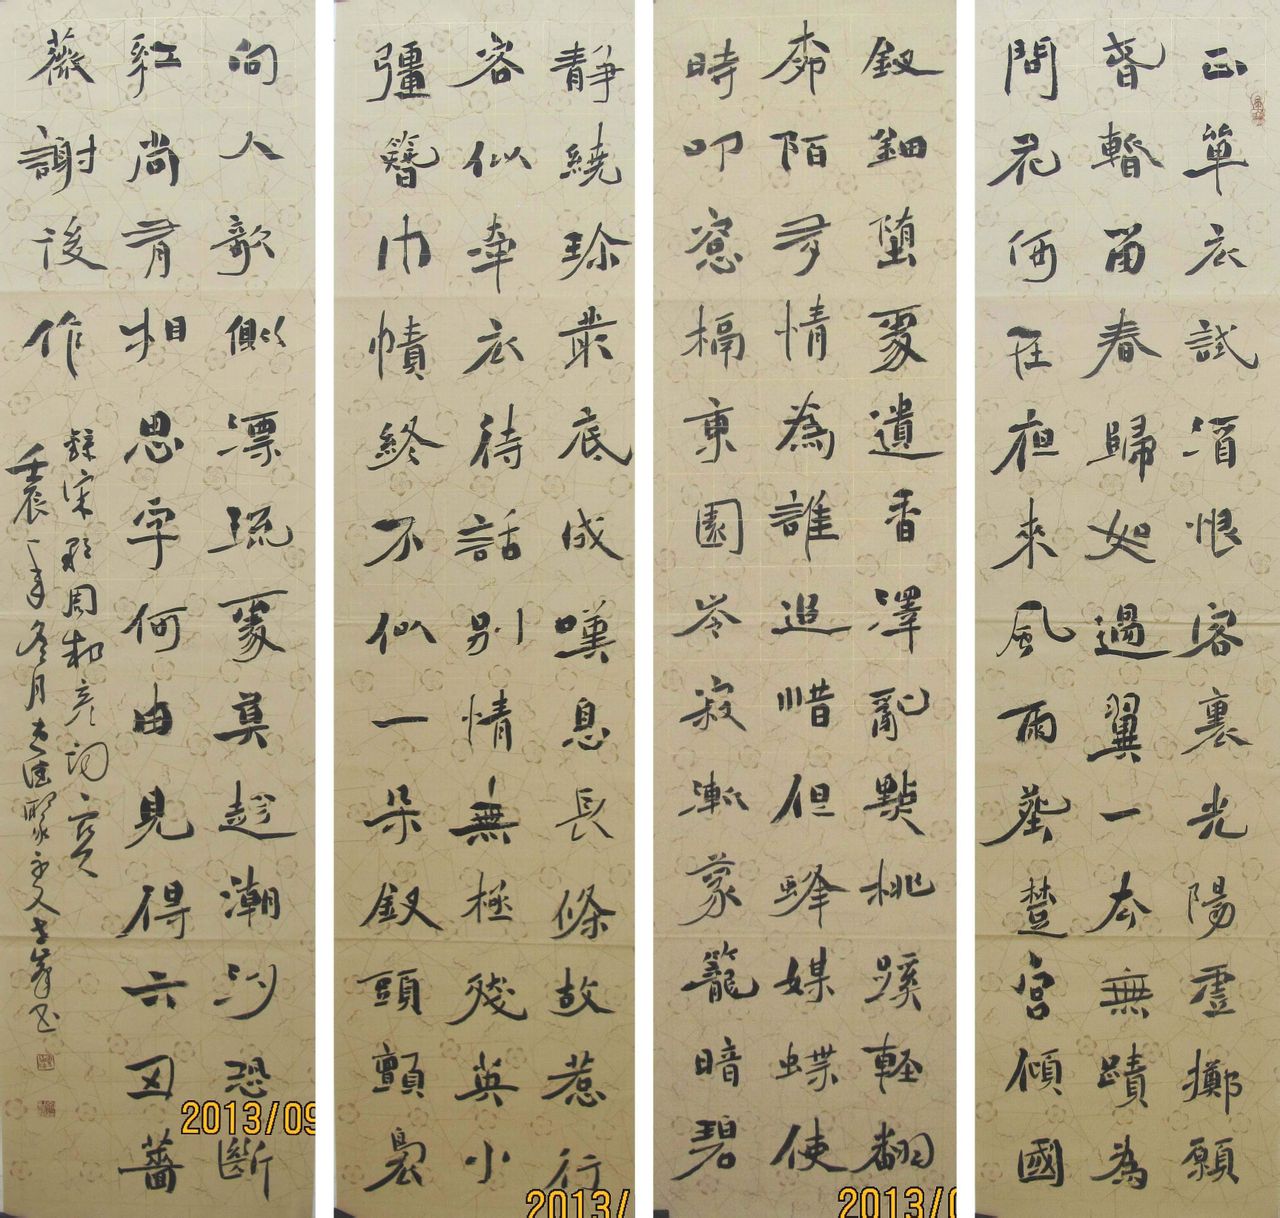 正單衣試酒恨客裏光陽虛擲願
春暫留春歸如過翼一去無蹟為
問花何在夜來風雨葬楚宮傾國
釵鈿墮處遺香澤亂點桃蹊輕翻
柳陌多情為誰追惜但蜂媒蝶使
時叩窗槅東園岑寂漸蒙籠暗碧
靜繞珍叢底成嘆息長條故惹行
客似牽衣待話別情無極殘英小
彊簪巾幘終不似一朵釵頭顫裊
向人欹側漂流處莫趁潮汐恐斷
紅尚有相思字何由見得六丑薔
薇謝後作
錄宋 周邦彥詞
壬辰年冬月
2013/09
2013/
2013/0